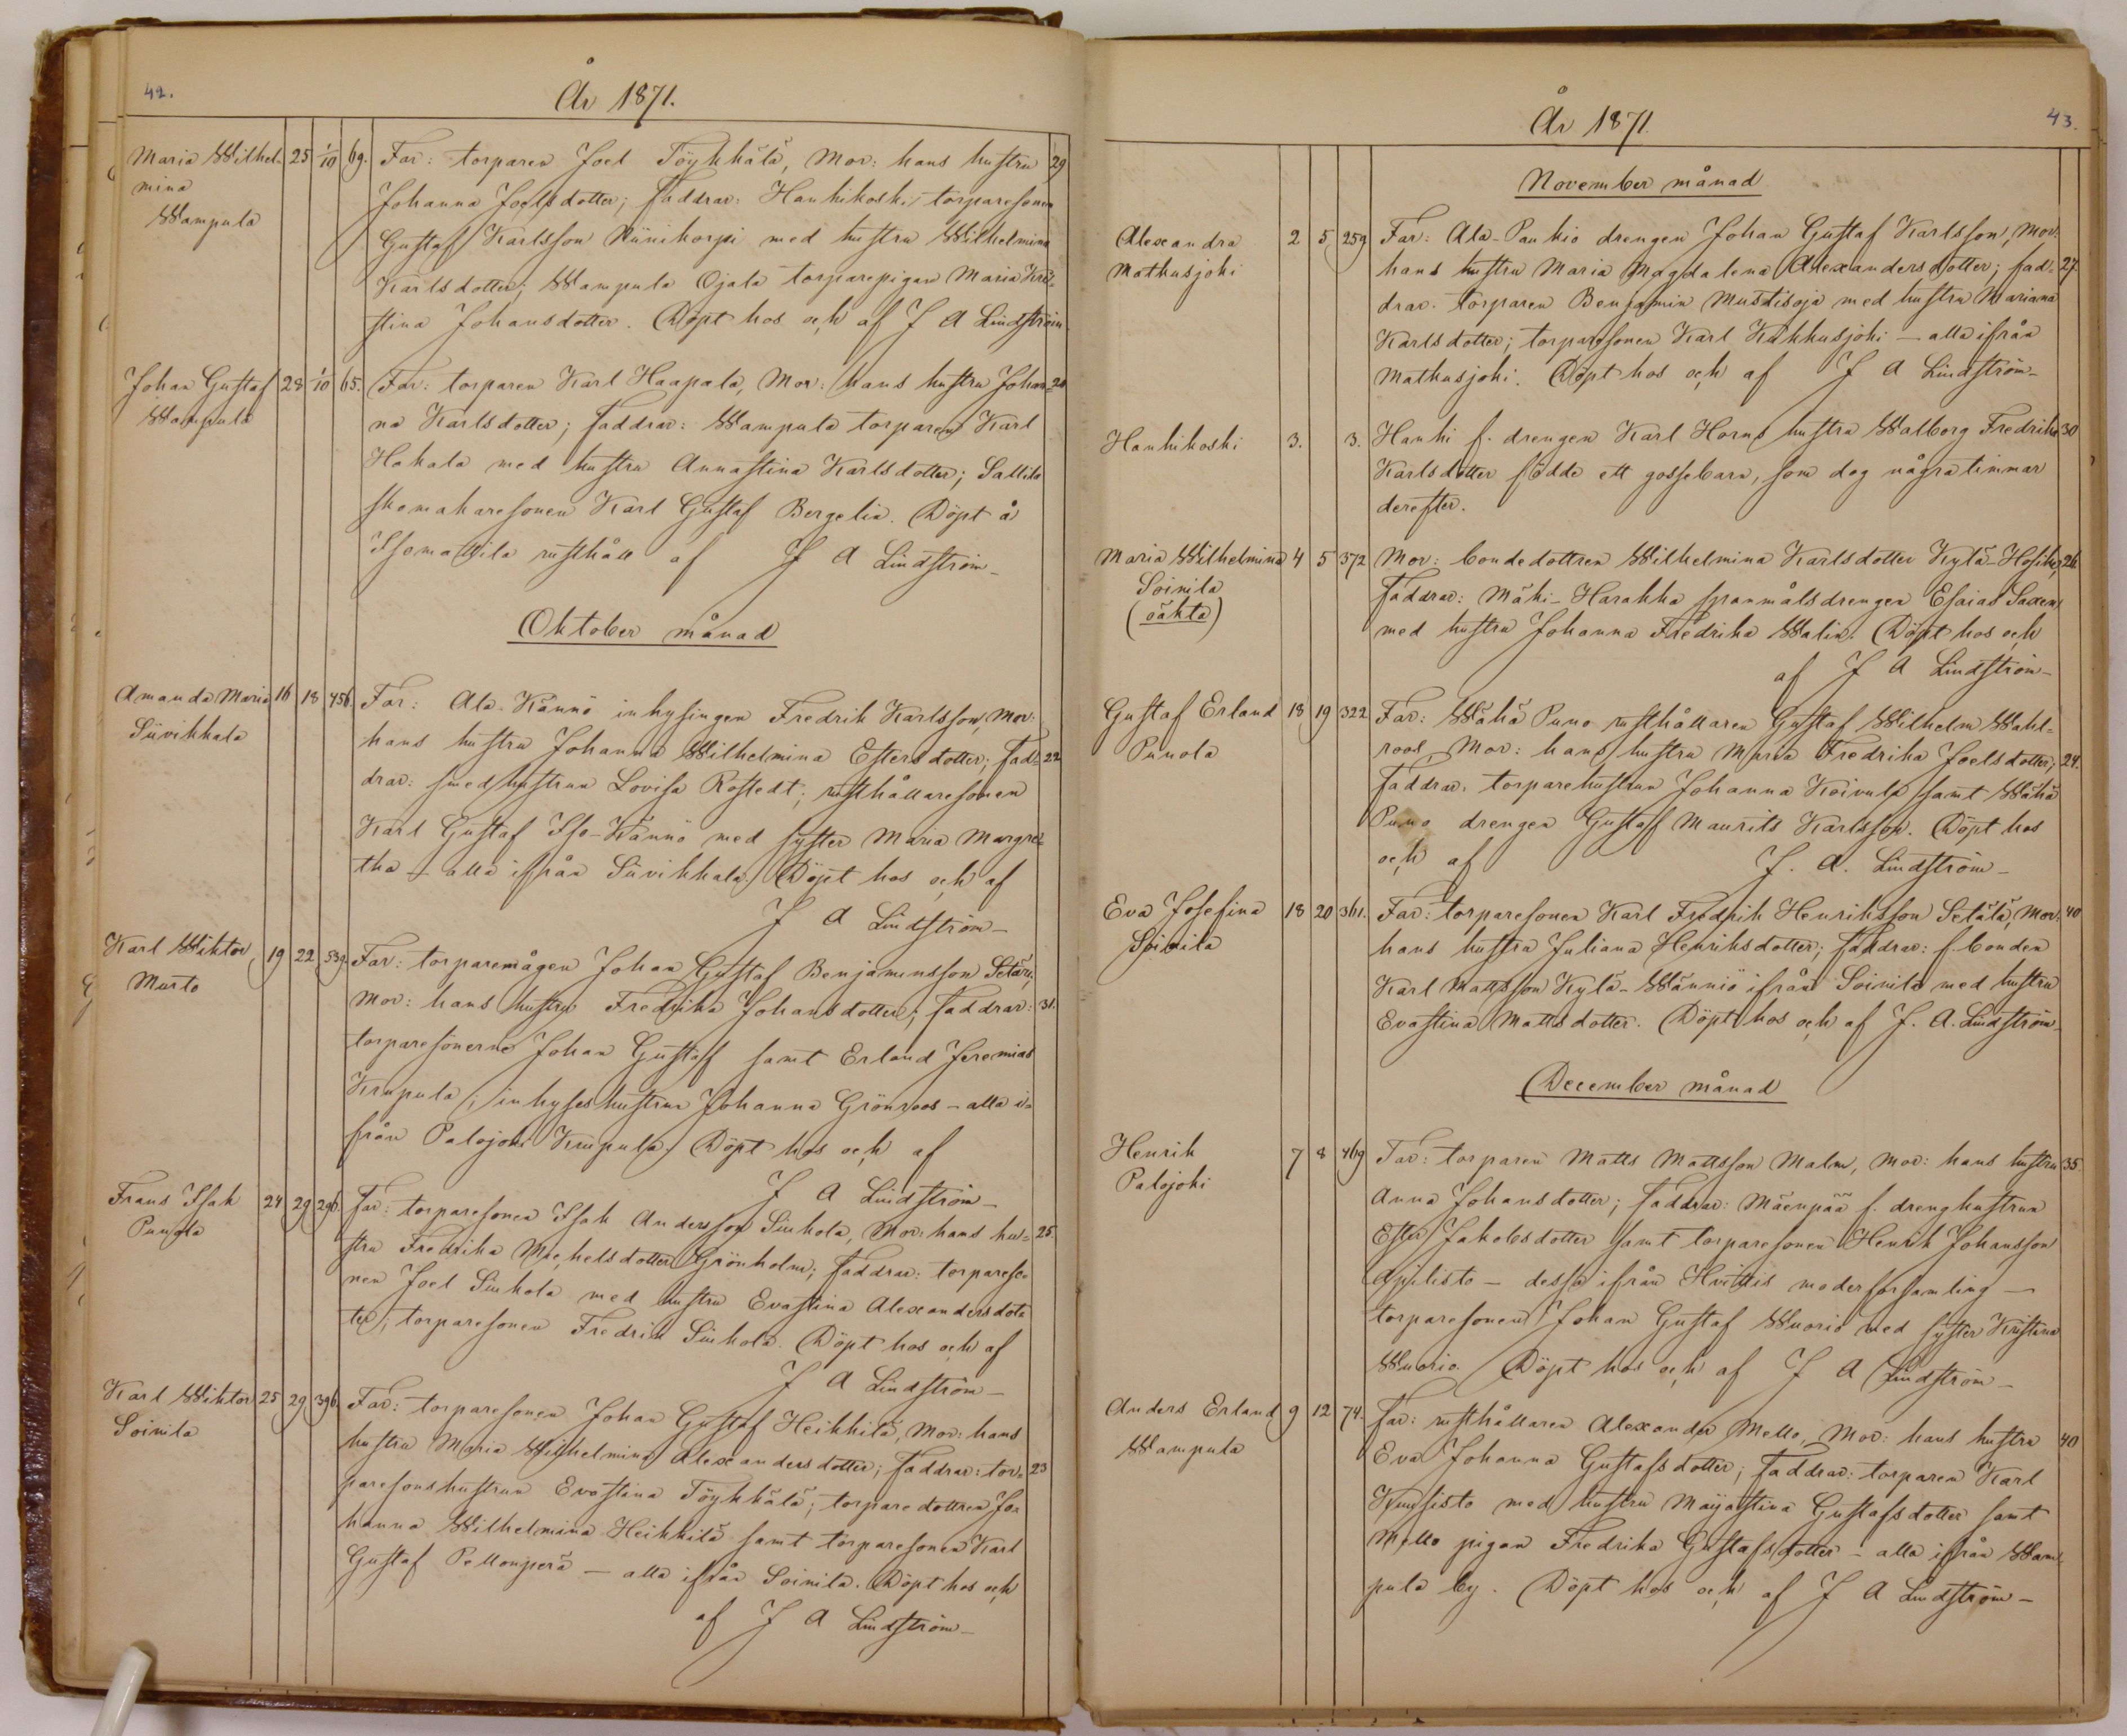 42.
År 1871.
Maria Wilhel- 25 1/10 69. Far: torparen Joel Töykkälä, Mor: hans hustru 29
mina Johanna Joelsdotter; faddrar: Hanhikoski torparesonen
Wampula Gustaf Karlsson Niinikorpi med hustru Wilhelmina
Karlsdotter; Wampula Ojala torparepigan Maria Kri-
stina Johansdotter. Döpt hos och af J A Lindström
Johan Gustaf 28 1/10 65. Far: torparen Karl Haapala, Mor: hans hustru Johan- 20
Wampula na Karlsdotter; faddrar: Wampula torparen Karl
Hakala med hustru Annastina Karlsdotter; Sallila
skomakaresonen Karl Gustaf Bergelin. Döpt å
Isomattila rusthåll af J A Lindström-
Oktober månad
Amanda Maria 16 18 456. Far: Ala-Kännö inhysingen Fredrik Karlsson, Mor:
Siivikkala hans hustru Johanna Wilhelmina Estersdotter; fad- 22
drar: smedhustrun Lovisa Rostedt; rusthållaresonen
Karl Gustaf Iso-Kännö med syster Maria Margre-
tha - alla ifrån Siivikkala. Döpt hos och af
J A Lindström-
Karl Wiktor 19 22 539. Far: torparemågen Johan Gustaf Benjaminsson
Murto Mor: hans hustru Fredrika Johansdotter; faddrar: 31.
torparesönerne Johan Gustaf samt Erland Jeremias
Krupula; inhyseshustrun Johanna Grönroos - alla i-
från Palojoki Krupula. Döpt hos och af
J A Lindström-
Frans Isak 24 29 296. Far: torparesonen Isak Andersson Siukola, Mor: hans hu- 25.
Punola stru Fredrika Michelsdotter Grönholm; faddrar: torpareso-
nen Joel Siukola med hustru Evastina Alexandersdot-
ter; torparesonen Fredrik Siukola. Döpt hos och af
J A Lindström-
Karl Wiktor 25 29 396. Far: torparesonen Johan Gustaf Heikkilä, Mor: hans
Soinila hustru Maria Wilhelmina Alexandersdotter; faddrar: tor- 23
paresonshustrun Evastina Töykkälä; torparedottren Jo-
hanna Wilhelmina Heikkilä samt torparesonen Karl
Gustaf Pellonperä - alla ifrån Soinila. Döpt hos och
af J A Lindström-
43.
År 1871.
November månad
Alexandra 2 5 259 Far: Ala-Pankio drengen Johan Gustaf Karlsson, Mor:
Matkusjoki hans hustru Maria Magdalena Alexandersdotter; fad- 27.
drar: torparen Benjamin Mustisoja med hustru Mariana
Karlsdotter; torparesonen Karl Kukkusjoki - alla ifrån
Matkusjoki. Döpt hos och af J A Lindström-
Hanhikoski 3. 3. Hanhi f. drengen Karl Horns hustru Walborg Fredrika 30
Karlsdotter födde ett gossebarn, som dog några timmar
derefter.
Maria Wilhelmina 4 5 372 Mor: bondedottren Wilhelmina Karlsdotter Kylä- 26.
Soinila faddrar: Mäki-Harakka spanmålsdrengen Esaias Saxen
(oäkta) med hustru Johanna Fredrika Walin. Döpt hos och
af J A Lindström-
Gustaf Erland 18 19 322 Far: Wähä Puno rusthållaren Gustaf Wilhelm Wahl-
Punola roos, Mor: hans hustru Maria Fredrika Joelsdotter; 24.
faddrar: torparehustrun Johanna Koivula samt Wähä
Puno drengen Gustaf Maurits Karlsson. Döpt hos
och af J. A. Lindström-
Eva Josefina 18 20 361. Far: torparesonen Karl Fredrik Henriksson Setälä, Mor: 40
Soinila hans hustru Juliana Henriksdotter; faddrar: f. bonden
Karl Mattsson Kylä-Männiö ifrån Soinila med hustru
Evastina Mattsdotter. Döpt hos och af J. A. Lindström-
December månad
Henrik 7 8 469 Far: torparen Matts Mattsson Malm, Mor: hans hustru 35.
Palojoki Anna Johansdotter; faddrar: Mäenpää f. drenghustrun
Ester Jakobsdotter samt torparesonen Henrik Johansson
- dessa ifrån Hvittis moderförsamling -
torparesonen Johan Gustaf Wuorio med syster Kristina
Wuorio. Döpt hos och af J A Lindström-
Anders Erland 9 12 74. Far: rusthållaren Alexander Mello, Mor: hans hustru 40
Wampula Eva Johanna Gustafsdotter; faddrar: torparen Karl
Kuusisto med hustru Majastina Gustafsdotter samt
Mello pigan Fredrika Gustafsdotter - alla ifrån Wam-
pula by. Döpt hos och af J A Lindström-